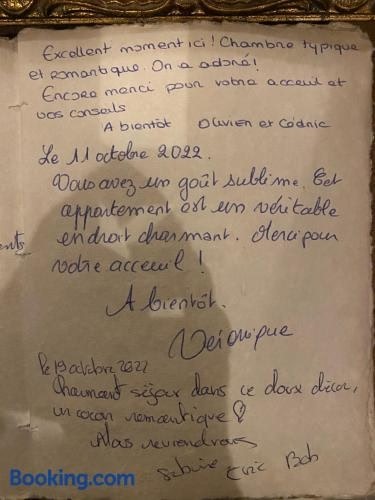 Excellent moment ici ! Chambre typique
et romantique. On a adoré !
Encore merci pour votre acceuil et
vos conseils
A bientôt Olivier et Cédric
Le 11 octobre 2022.
Vous avez un goût sublime. Cet
appartement est un véritable
endroit charmant. Merci pour
votre acceuil !
A bientôt.
Véronique
le 19 octobre 2022
Charmant séjour dans ce doux décor,
un cocon romantique
Nous reviendrons
Sabine Eric Bob
Booking.com